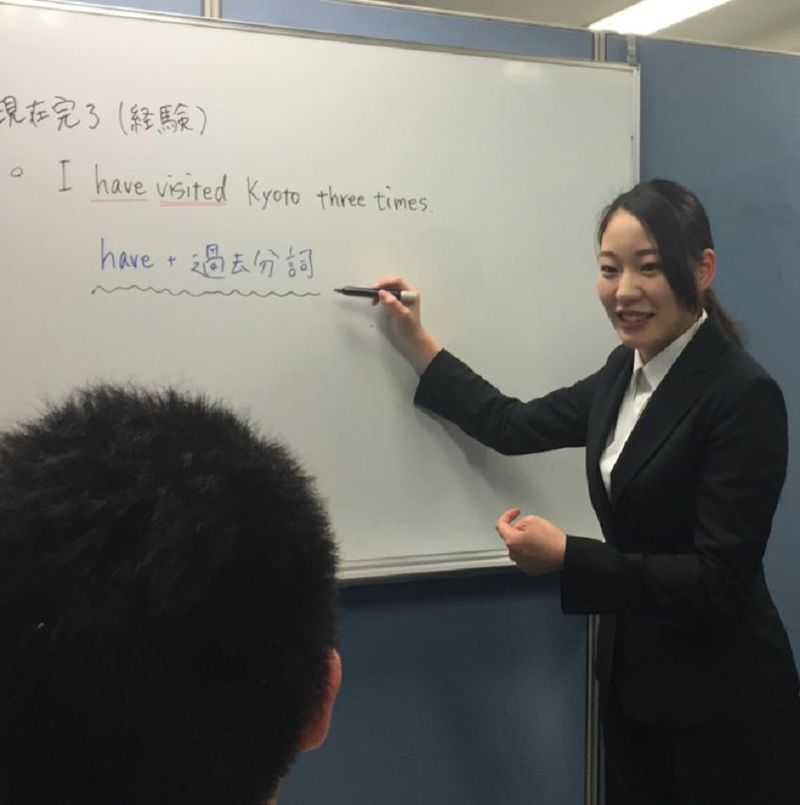 現在完了(経験)
○ I have visited Kyoto three times.
have + 過去分詞